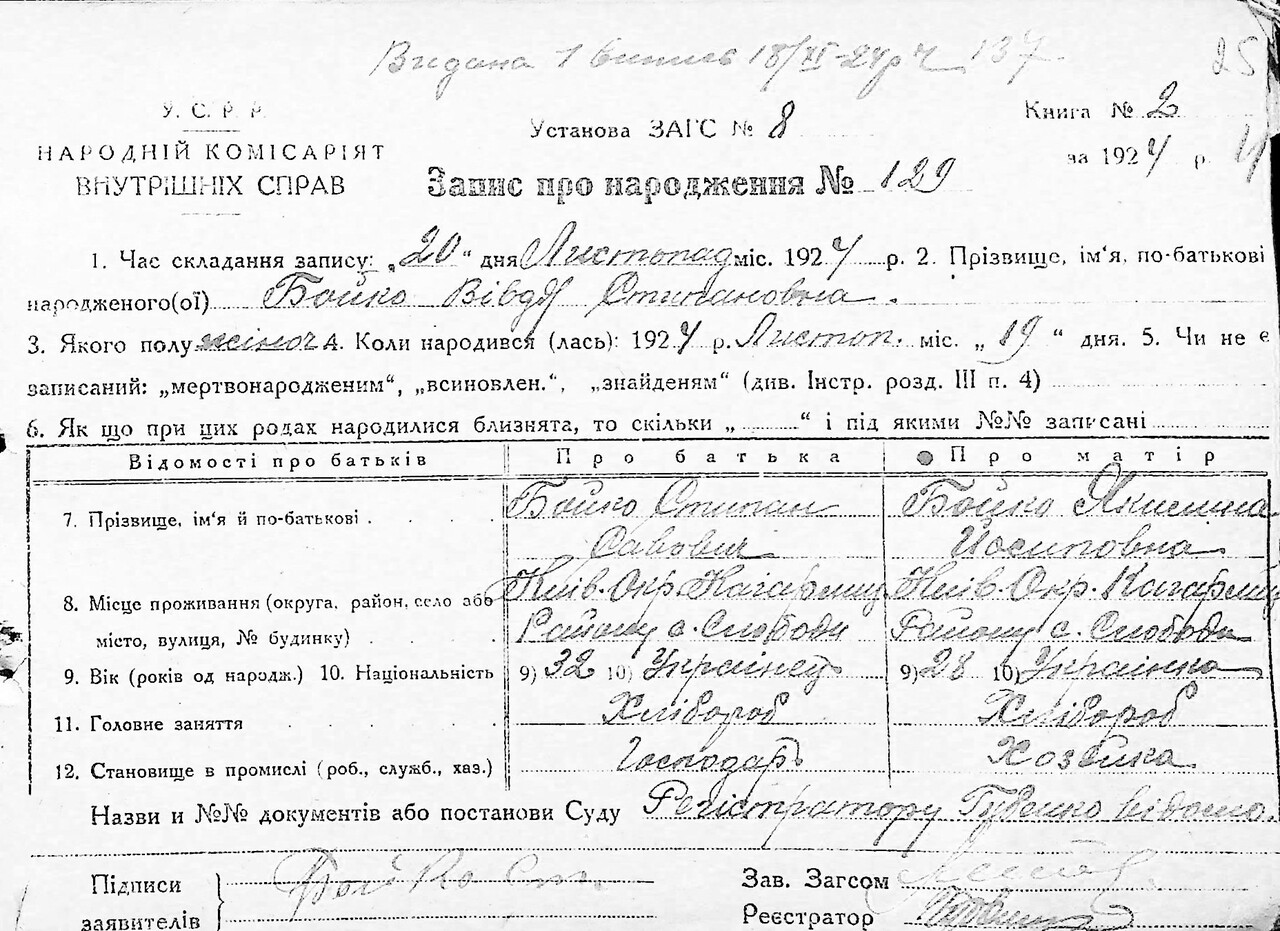 Видана 1 випись 18/XI-24р ч 137
25
У. С. Р. Р.
НАРОДНІЙ КОМІСАРІЯТ
ВНУТРІШНІХ СПРАВ
Установа ЗАГС № 8
Книга № 2
за 1924 р.
Запис про народження № 129
1. Час складання запису: „20" дня Листопад міс. 1924 р. 2. Прізвище, ім'я, по-батькові
народженого(ої) Бойко Вівдя Стипановна.
3. Якого полу жіноч 4. Коли народився (лась): 1924 р. Листоп. міс. „19" дня. 5. Чи не є
записаний: „мертвонародженим", „всиновлен.", „знайденям" (див. Інстр. розд. III п. 4)
6. Як що при цих родах народилися близнята, то скільки „ " і під якими №№ записані
Відомості про батьків Про батька Про матір
7. Прізвище, ім'я й по-батькові . . . . Бойко Стипан Бойко Якилина
Савович Иосиповна
8. Місце проживання (округа, район, село або Київ. Окр. Кагарлиц Київ. Окр. Кагарлиц
місто, вулиця, № будинку) . . . . Району с. Слободи Району с. Слободи
9. Вік (років од народж.) 10. Національність 9) 32 10) Українец 9) 28 10) Українка
11. Головне заняття . . . . . Хлібороб Хлібороб
12. Становище в промислі (роб., служб., хаз.) Господарь Хозяйка
Назви и №№ документів або постанови Суду Регістратору Губенко відомо.
Підписи
заявителів
Бойко Ст.
Зав. Загсом
Реєстратор